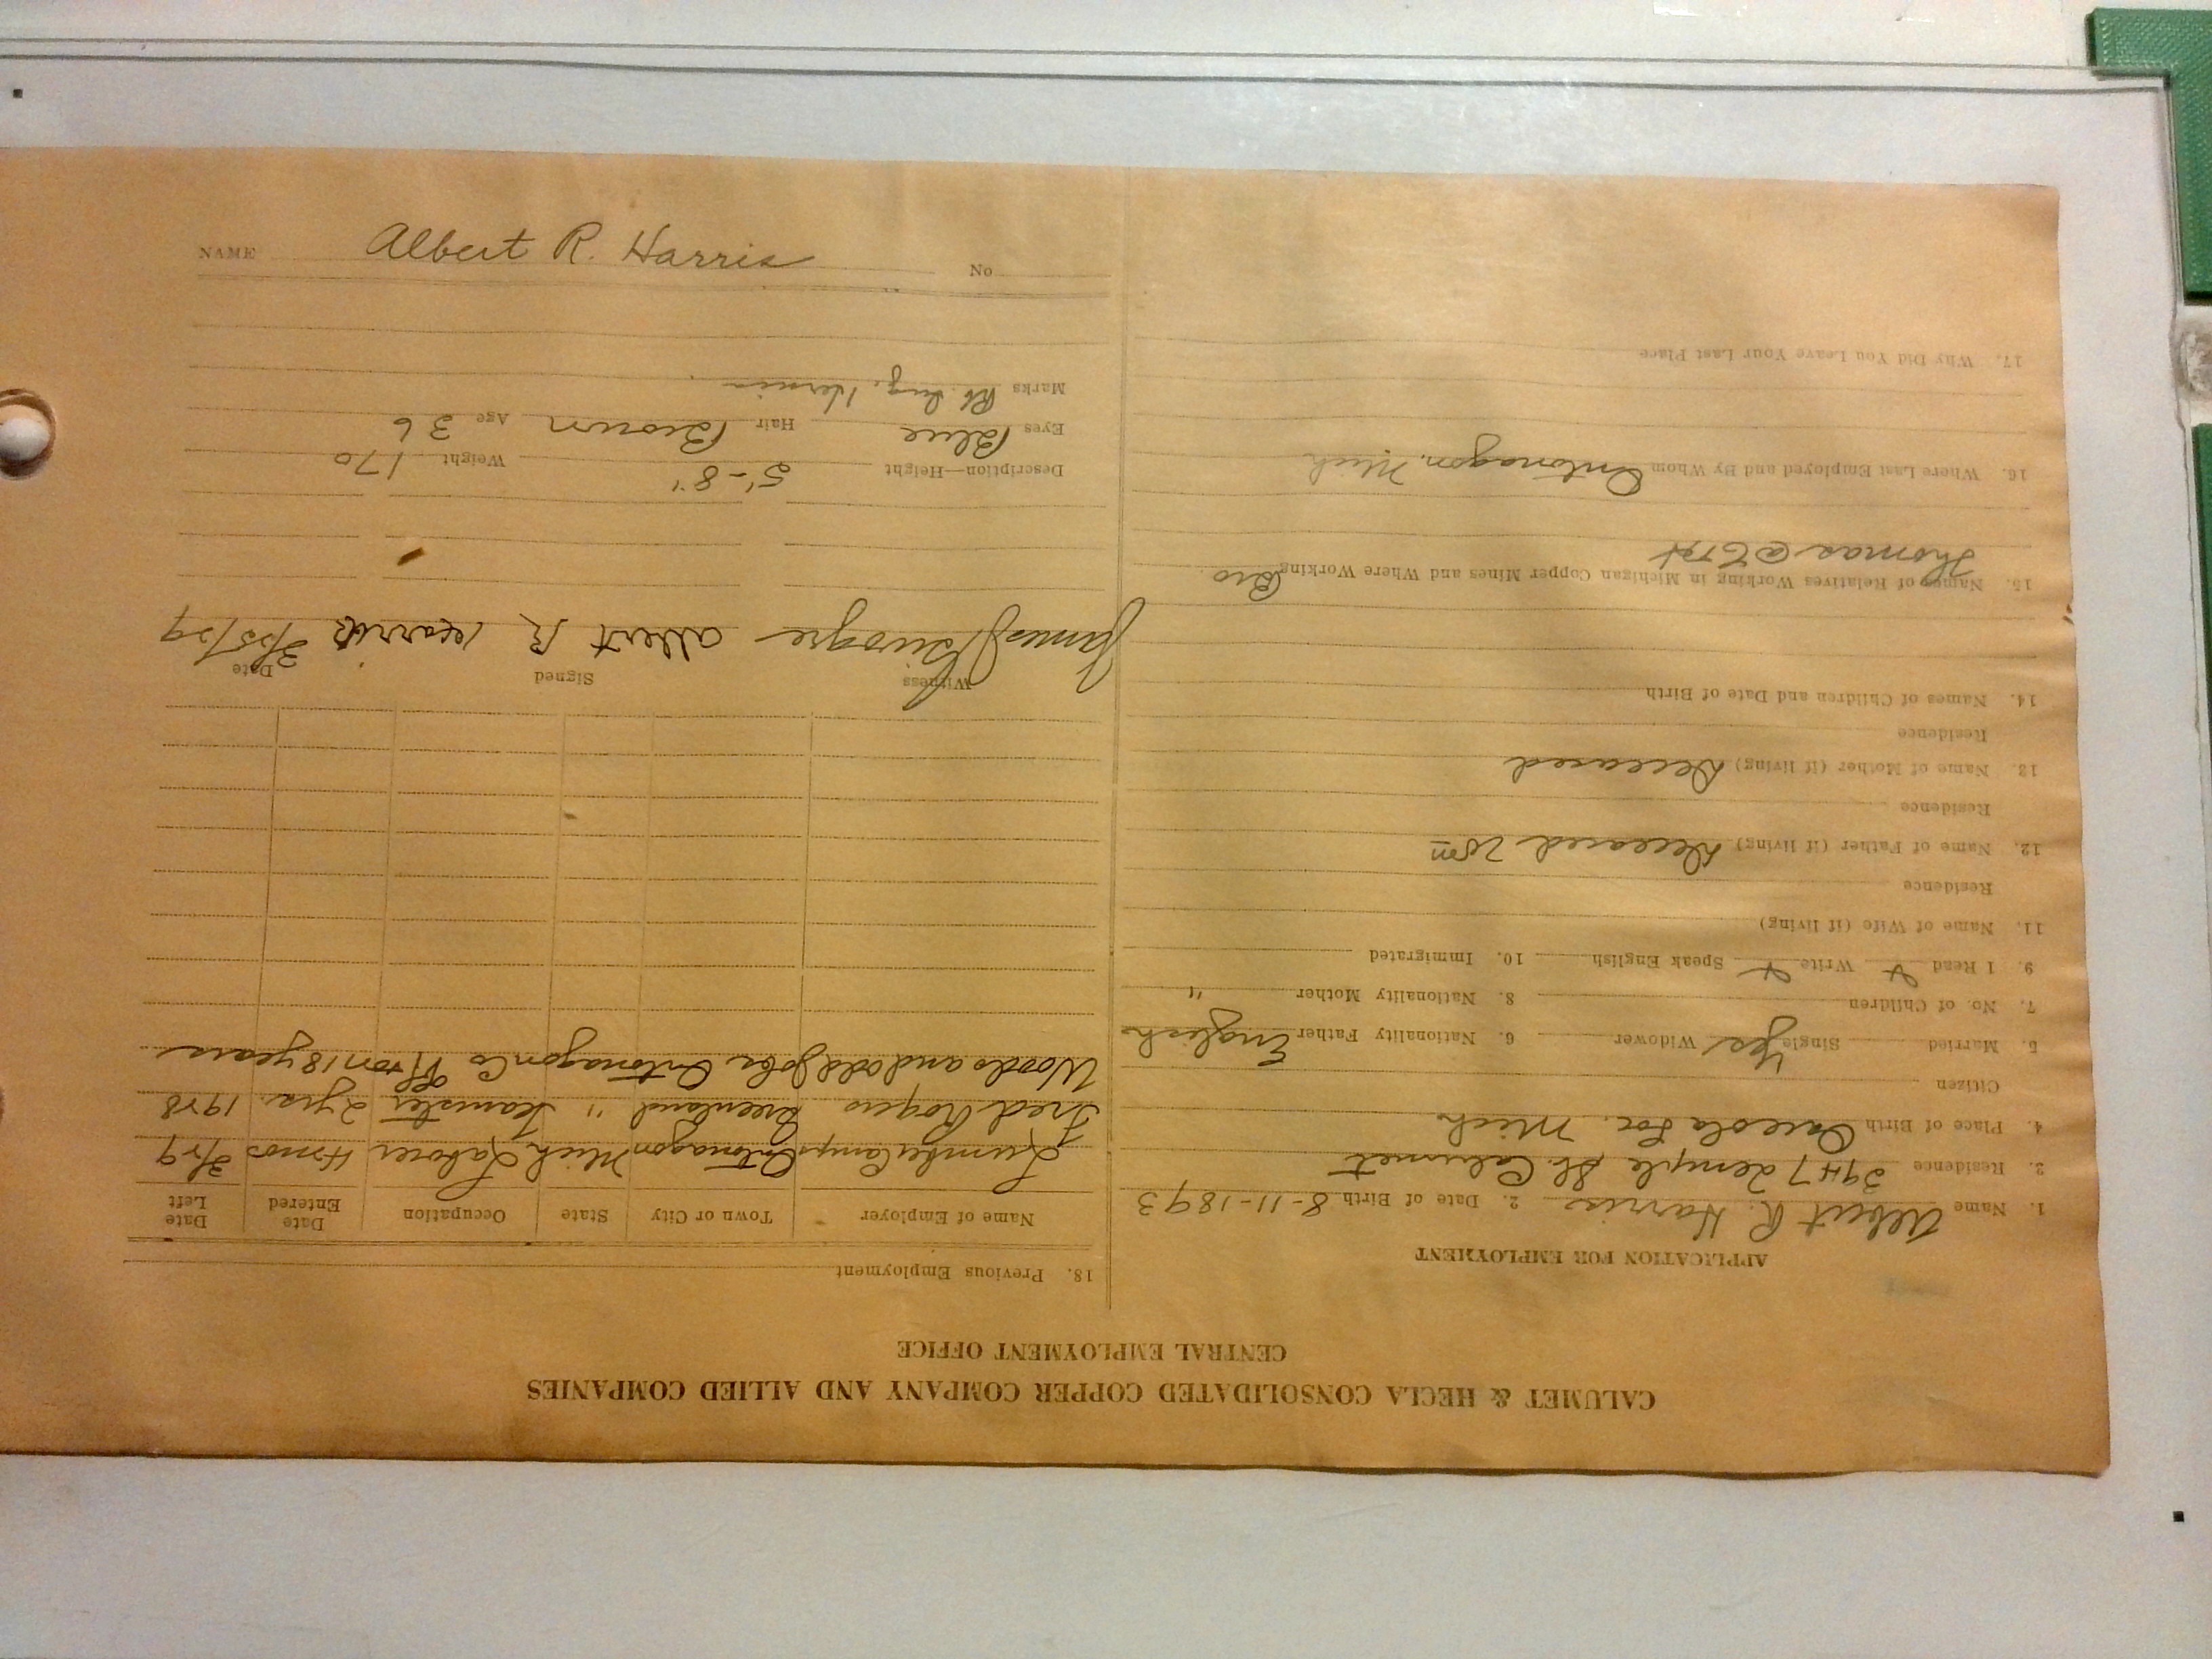 CALUMET & HECLA CONSOLIDATED COPPER COMPANY AND ALLIED COMPANIES
CENTRAL EMPLOYMENT OFFICE
APPLICATION FOR EMPLOYMENT
1. Name Albert R. Harris 2. Date of Birth 8-11-1893
3. Residence 3947 Temple St. Calumet
4. Place of Birth Osceola Loc. Mich
Citizen
5. Married Single Yes Widower 6. Nationality Father English
7. No. of Children 8. Nationality Mother "
9. I Read x Write x Speak English 10. Immigrated
11. Name of Wife (if living)
Residence
12. Name of Father (if living) Deceased
Residence
13. Name of Mother (if living) Deceased
Residence
14. Names of Children and Date of Birth
15. Names of Relatives Working in Michigan Copper Mines and Where Working Bro
Thomas @
16. Where Last Employed and By Whom Ontonagon, Mich
17. Why Did You Leave Your Last Place
18. Previous Employment
Name of Employer Town or City State Occupation Date Entered Date Left
Lumber Camp Ontonagon Mich Laborer 4 mos 3/29
Fred Rogers Greenland " Teamster 2 yrs. 1928
Woods and odd jobs Ontonagon Co 18 years
Witness Signed Date
James Albert R Harris 3/25/29
Description—Height 5'-8" Weight 170
Eyes Blue Hair Brown Age 36
Marks Rt. Ing. Hernia
NAME Albert R. Harris No.